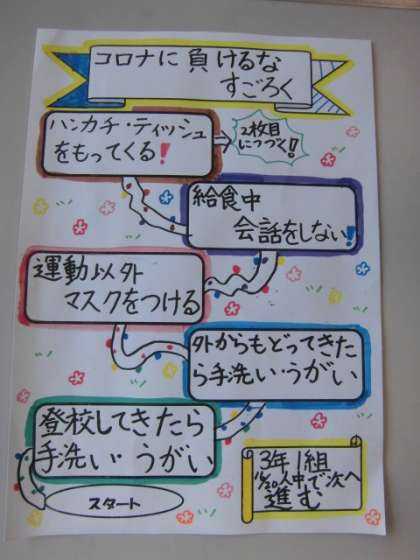 コロナに負けるな
すごろく
ハンカチ・ティッシュ
をもってくる!
2枚目
につづく!
給食中
会話をしない!
運動以外
マスクをつける
外からもどってきた
ら手洗い・うがい
登校してきたら
手洗い・うがい
スタート
3年1組
人中で次へ
進む